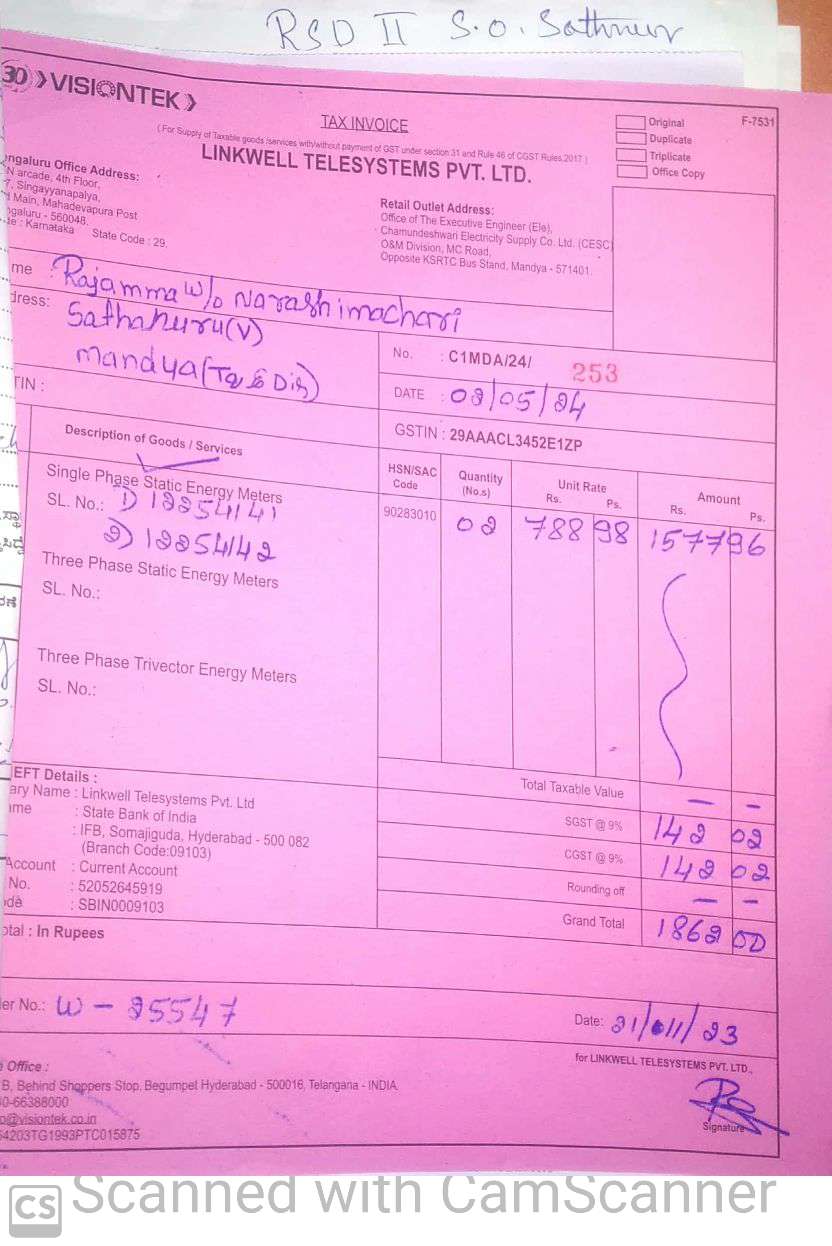 RSD II S.O. Sathnur
30 VISIONTEK
TAX INVOICE
(For Supply of Taxable goods /services with/without payment of GST under section 31 and Rule 46 of CGST Rules.2017)
LINKWELL TELESYSTEMS PVT. LTD.
Original
Duplicate
Triplicate
Office Copy
F-7531
engaluru Office Address:
N arcade, 4th Floor,
7, Singayyanapalya,
Main, Mahadevapura Post
ngaluru - 560048,
te : Karnataka State Code : 29.
Retail Outlet Address:
Office of The Executive Engineer (Ele),
Chamundeshwari Electricity Supply Co. Ltd. (CESC)
O&M Division, MC Road,
Opposite KSRTC Bus Stand, Mandya - 571401.
me : Rajamma W/o Narashimachari
dress: Sathanuru(V)
Mandya (Tq & Dis)
TIN :
No. : C1MDA/24/ 253
DATE : 02/05/24
GSTIN : 29AAACL3452E1ZP
Description of Goods / Services
HSN/SAC Code
Quantity (No.s)
Unit Rate Rs. Ps.
Amount Rs. Ps.
Single Phase Static Energy Meters
SL. No.: 1) 12254141
2) 12254142
90283010 02 788 98 1577 96
Three Phase Static Energy Meters
SL. No.:
Three Phase Trivector Energy Meters
SL. No.:
EFT Details :
ary Name : Linkwell Telesystems Pvt. Ltd
me : State Bank of India
: IFB, Somajiguda, Hyderabad - 500 082
(Branch Code:09103)
Account : Current Account
No. : 52052645919
de : SBIN0009103
Total Taxable Value — —
SGST @ 9% 142 02
CGST @ 9% 142 02
Rounding off — —
Grand Total 1862 00
otal : In Rupees
er No.: W - 25547
Date: 21/011/23
for LINKWELL TELESYSTEMS PVT. LTD.,
Office :
B, Behind Shoppers Stop, Begumpet Hyderabad - 500016, Telangana - INDIA.
0-66388000
o@visiontek.co.in
54203TG1993PTC015875
Signature
CS Scanned with CamScanner